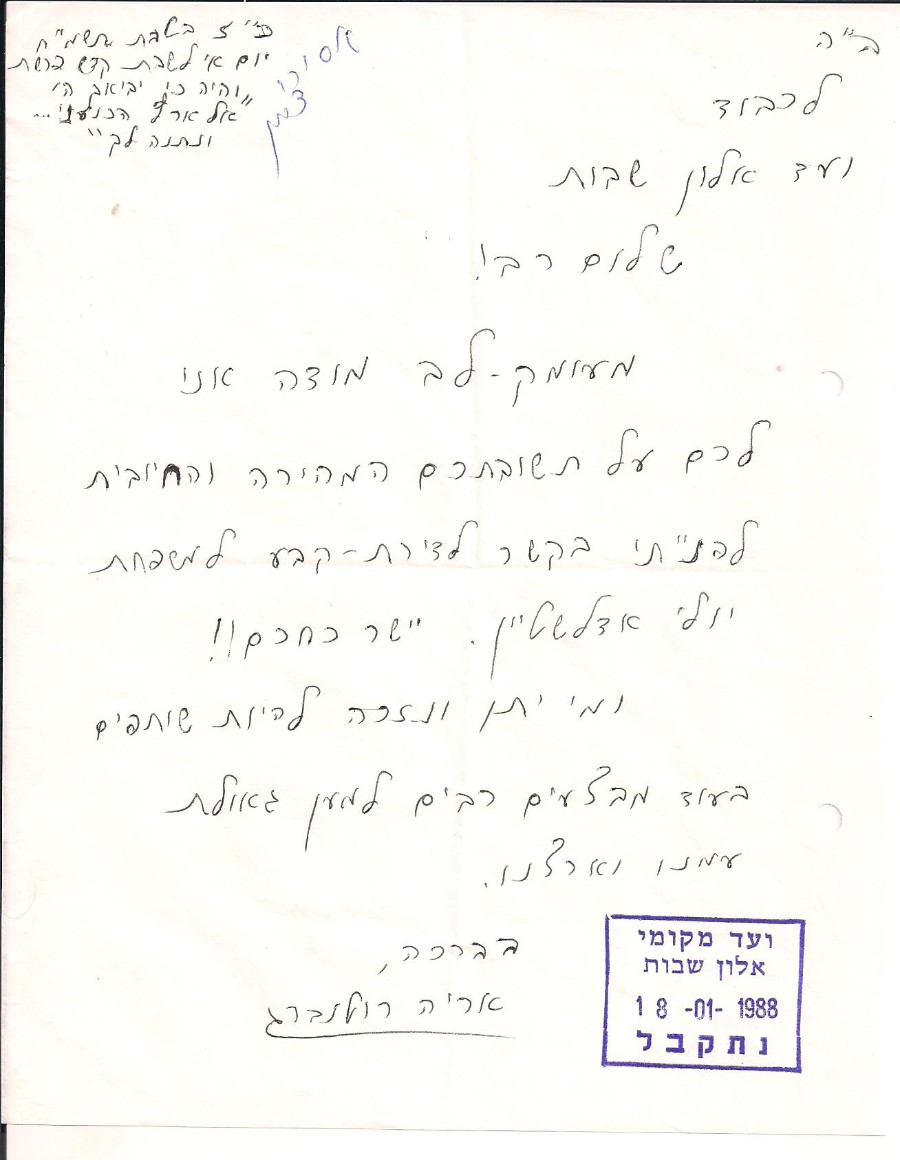 ב"ה
כ"ז בטבת תשמ"ח
יום א' לשבת קדש פרשת
"והיה כי יביאך ה'
אל ארץ הכנעני...
ונתנה לך"
אסירי
ציון
לכבוד
ועד אלון שבות
שלום רב!
מעומק-לב מודה אני
לכם על תשובתכם המהירה והחיובית
בקשר לדירת-קבע למשפחת
יולי אדלשטיין. יישר כחכם!!
ומי יתן ונזכה להיות שותפים
בעוד מבצעים רבים למען גאולת
עמנו וארצנו.
בברכה,
אריה רוטנברג
ועד מקומי
אלון שבות
18 -01- 1988
נתקבל